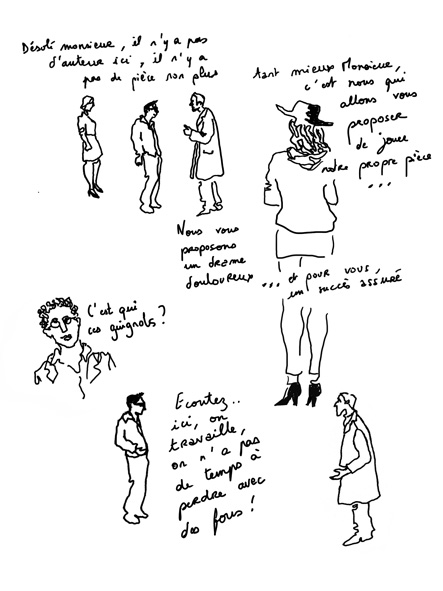 Désolé monsieur, il n'y a pas
d'auteur ici, il n'y a
pas de pièce non plus
tant mieux Monsieur,
c'est nous qui
allons vous
proposer
de jouer
notre propre pièce
...
Nous vous
proposons
un drame
douloureux
... et pour vous,
un succès assuré
C'est qui
ces guignols ?
Ecoutez..
ici, on
travaille,
on n'a pas
de temps à
perdre avec
des fous !